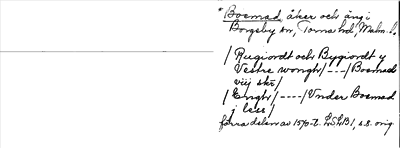 * Bosmad åker och äng i
Borgeby sn, Torna hd, Malm. l.
/ Rugiordt och Bygiordt y
Vestre wongh/---/Bosmad
viij skr/
/Engh/----/Vnder Bosmad
j less/
förra delen av 1570-t.